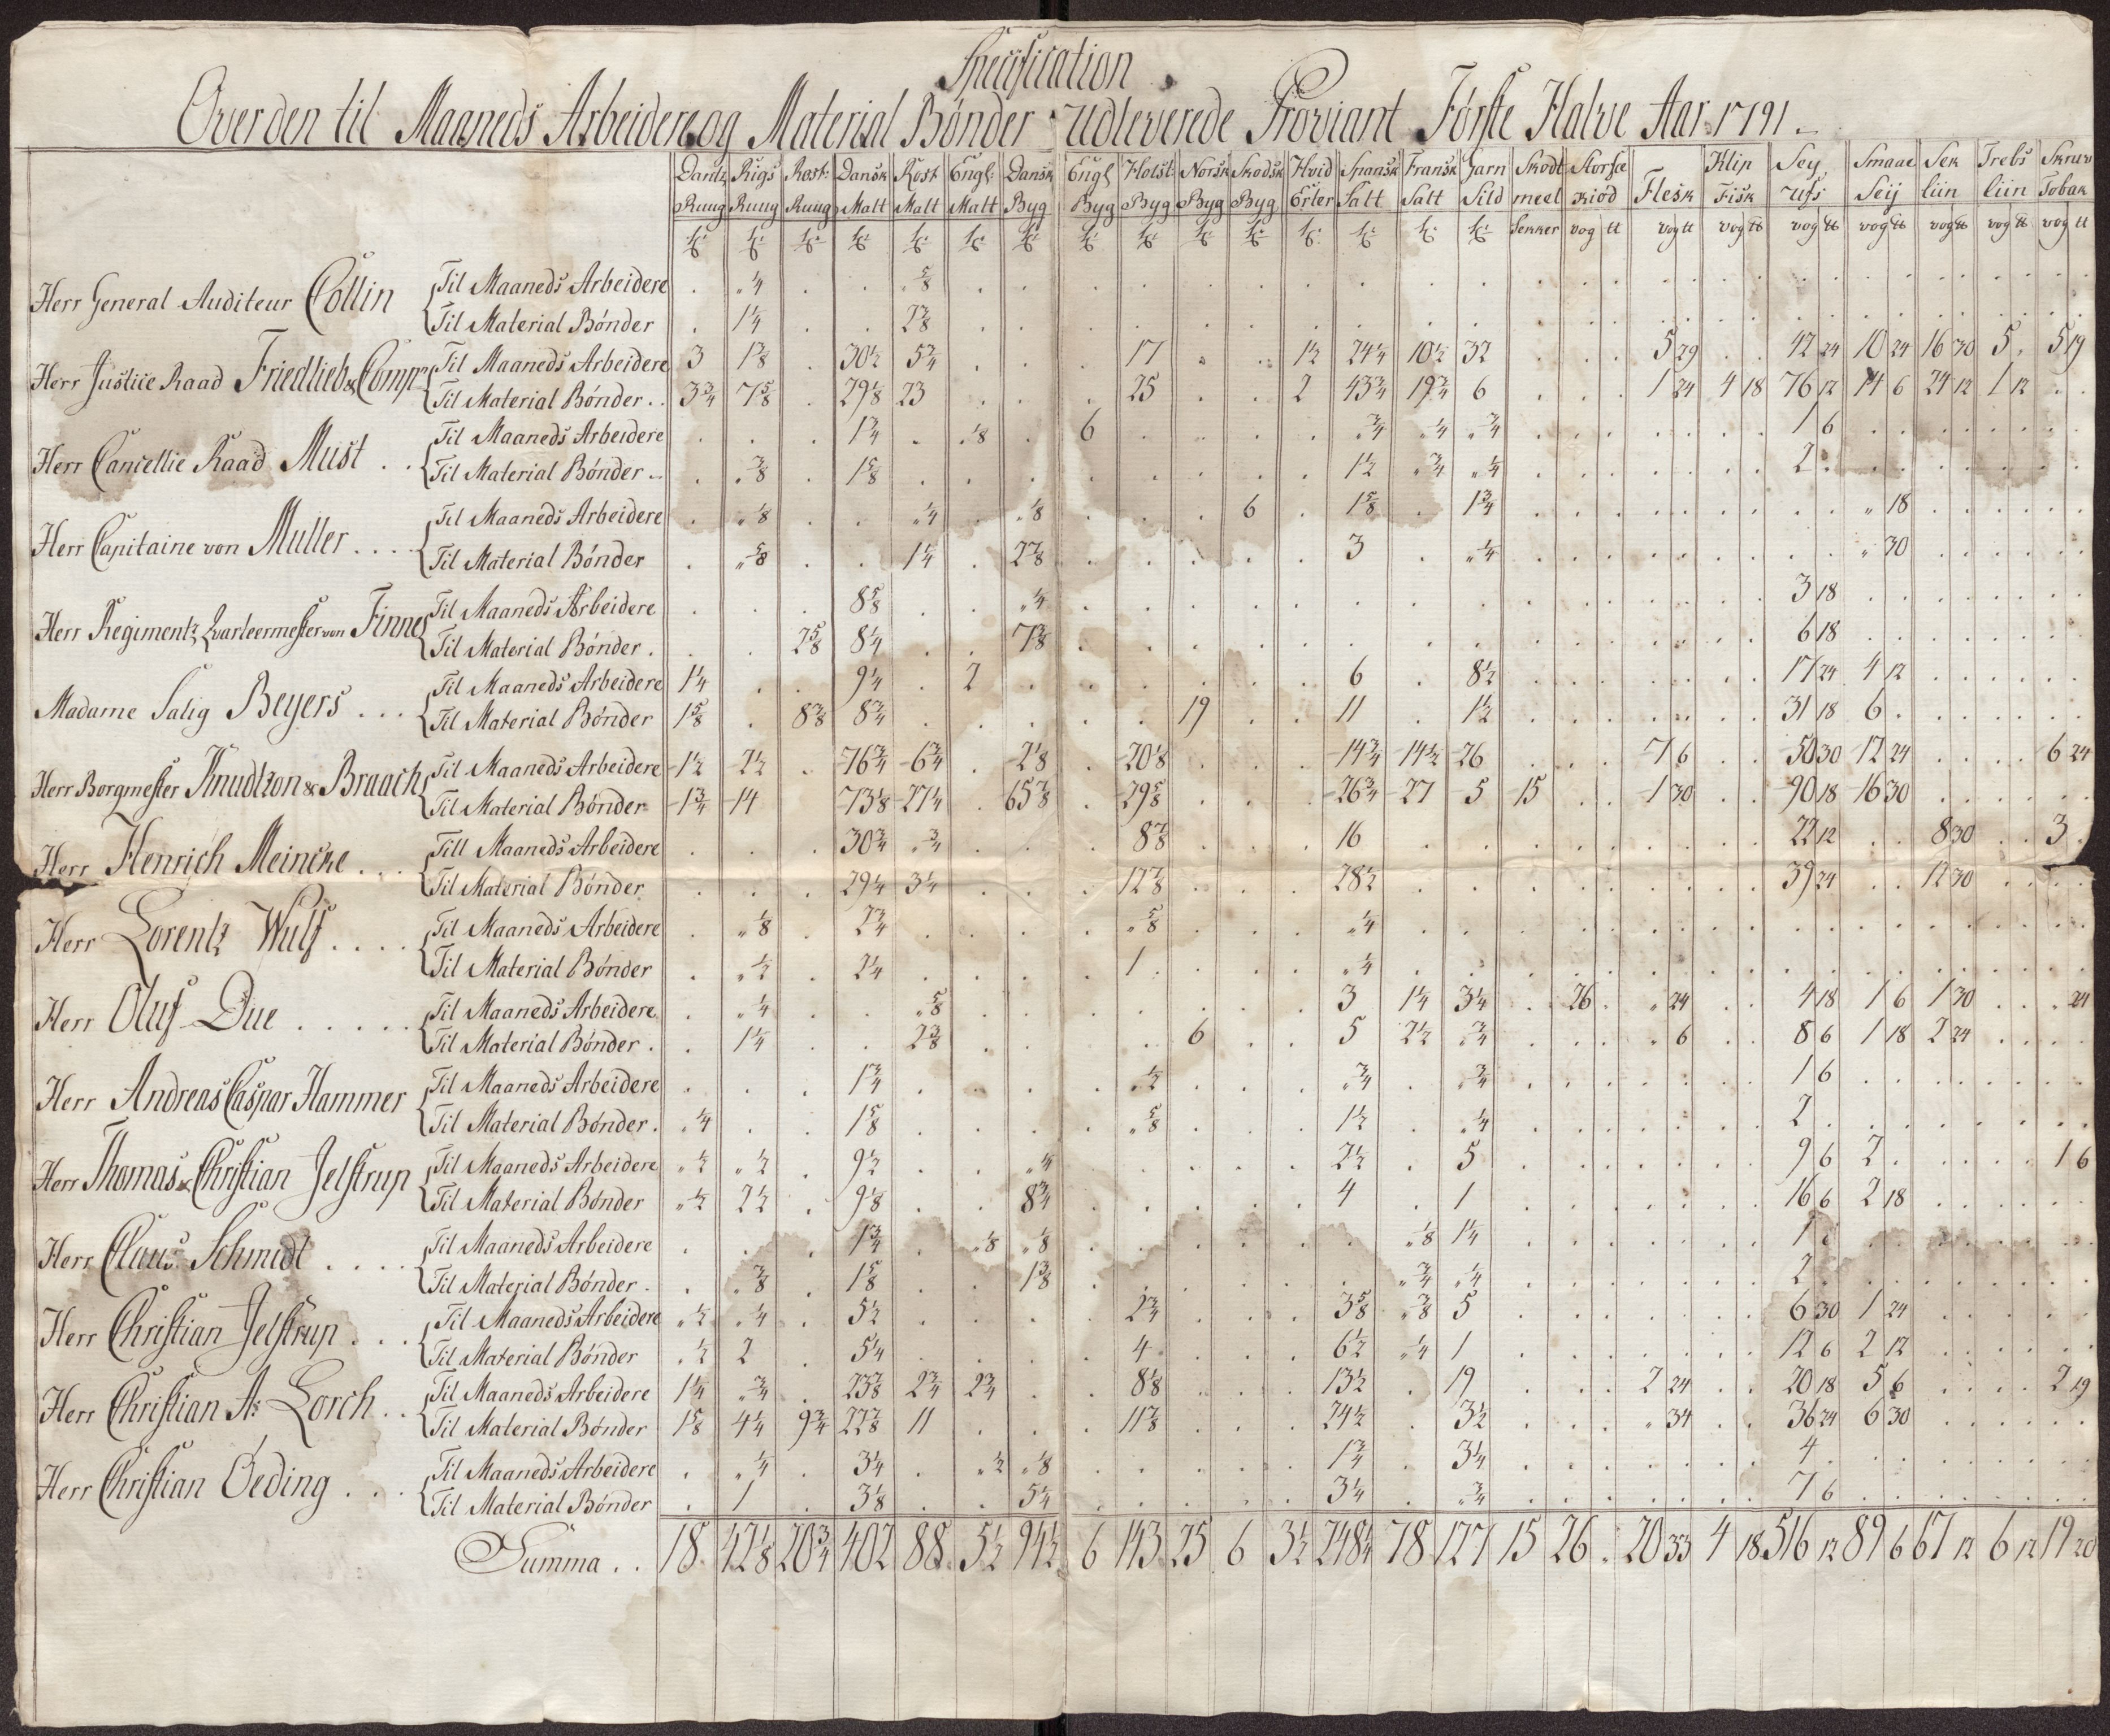 Specification
Over den til Maaneds Arbeidere og Material Bønder Udleverede Proviant Første Halve Aar 1791
Dantz Rigs Rost: Dansk Rost Engl: Dansk Engl Holst: Norsk Skodsk Hvid Spansk Fransk Garn Skodt Storfæ Flesk Klip Sey Smaae Sek Trebs Skruv
Ruug Ruug Ruug Malt Malt Malt Byg Byg Byg Byg Byg Erter Salt Salt Sild meel Kiød Fisk ufs Seij liin liin Tobak
Sekker vog tt vog tt vog tt vog tt vog tt vog tt vog tt vog tt
Herr General Auditeur Collin
Til Maaneds Arbeidere . „¼ . . ⅝
Til Material Bønder . 1¼ . . 2⅜
Herr Justice Raad Friedlieb & Comp
Til Maaneds Arbeidere 3 1⅜ . 30½ 5¾ 17 1½ 24¼ 10½ 32 5 29 42 24 10 24 16 30 5 . 5 19
Til Material Bønder . . 3¾ 7⅝ . 29⅛ 23 25 2 43¾ 19¾ 6 1 24 4 18 76 12 14 6 24 12 1 12
Herr Cancellie Raad Must . .
Til Maaneds Arbeidere 1¾ . „⅛ . 6 „¾ „¼ „¾ 1 6
Til Material Bønder . . „⅜ . 1⅝ 1½ „¾ „¼ 2 .
Herr Capitaine von Muller . . . .
Til Maaneds Arbeidere . „⅛ . . „¼ . „⅛ 6 1⅝ . 1¾ „ 18
Til Material Bønder . „⅝ . . 1¼ . 2⅜ 3 . „¼ „ 30
Herr Regimentz Qvarteermester von Finne
Til Maaneds Arbeidere 8⅝ . . „¼ 3 18
Til Material Bønder . 2⅝ 8¼ . . 7⅜ 6 18
Madame Salig Beyers . . .
Til Maaneds Arbeidere 1¼ . . 9¼ . 2 6 . 8½ 17 24 4 12
Til Material Bønder 1⅝ . 8⅜ 8¾ 19 11 . 1½ 31 18 6 .
Herr Borgmester Knudtzon & Braach
Til Maaneds Arbeidere 1½ 2½ . 76¾ 6¾ . 2⅛ . 20⅛ 14¾ 14½ 26 7 6 50 30 12 24 6 24
Til Material Bønder 1¾ 14 73⅛ 27¼ . 65⅜ . 29⅝ 26¾ 27 5 15 1 30 90 18 16 30
Herr Henrich Meincke . . .
Till Maaneds Arbeidere 30¾ „¾ 8⅞ 16 22 12 8 30 3 .
Til Material Bønder 29¼ 3¼ 12⅞ 28½ 39 24 12 30
Herr Lorentz Wulf . . . .
Til Maaneds Arbeidere . „⅛ 2¾ „⅝ „¼
Til Material Bønder . „½ . 2¼ 1 . „¼
Herr Oluf Due . . . . .
Til Maaneds Arbeidere . „¼ . . „⅝ 3 1¼ 3¼ 26 . „ 24 4 18 1 6 1 30 „ 24
Til Material Bønder . . 1¼ . . 2⅜ 6 5 2½ „¾ „ 6 8 6 1 18 2 24
Herr Andreas Caspar Hammer
Til Maaneds Arbeidere 1¾ „½ „¾ . „¾ 1 6
Til Material Bønder . „¼ . . 1⅝ „⅝ 1½ . „¼ 2 .
Herr Thomas & Christian Jelstrup
Til Maaneds Arbeidere „½ „½ . 9½ . . „¼ 2½ . 5 9 6 2 . 1 6
Til Material Bønder „½ 2½ . 9⅛ . . 8¾ 4 . 1 16 6 2 18
Herr Claus Schmidt . . . .
Til Maaneds Arbeidere 1¾ . „⅛ „⅛ „⅛ 1¼ 1 6
Til Material Bønder . „⅜ . 1⅝ . . 1⅜ „¾ „¼ 2 .
Herr Christian Jelstrup . . .
Til Maaneds Arbeidere „½ „¼ . 5½ 2¾ 3⅝ „⅜ 5 6 30 1 24
Til Material Bønder „½ 2 . 5¼ 4 . 6½ „¼ 1 12 6 2 12
Herr Christian A: Lorch . .
Til Maaneds Arbeidere 1¼ „¾ . 23⅞ 2¾ 2¾ 8⅛ 13½ . 19 2 24 20 18 5 6 2 19
Til Material Bønder 1⅝ 4¼ 9¾ 22⅞ 11 11⅞ 24½ . 3½ „ 34 36 24 6 30
Herr Christian Oeding . . .
Til Maaneds Arbeidere . „¼ . 3¼ . „½ „⅛ 1¾ . 3¼ 4 .
Til Material Bønder . 1 . 3⅛ . . 5¼ 3¼ . „¾ 7 6
Summa . . 18 42⅛ 20¾ 402 88 5½ 94½ 6 143 25 6 3½ 248¼ 78 127 15 26 . 20 33 4 18 516 12 89 6 67 12 6 12 19 20